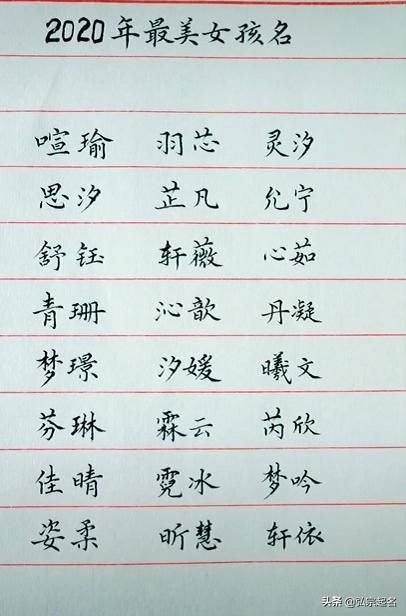 2020年最美女孩名
喧瑜 羽芯 灵汐
思汐 芷凡 允宁
舒钰 轩薇 心茹
青珊 沁歆 丹凝
梦璟 汐媛 曦文
芬琳 霖云 芮欣
佳晴 霓冰 梦吟
姿柔 昕慧 轩依
头条 @弘宗起名